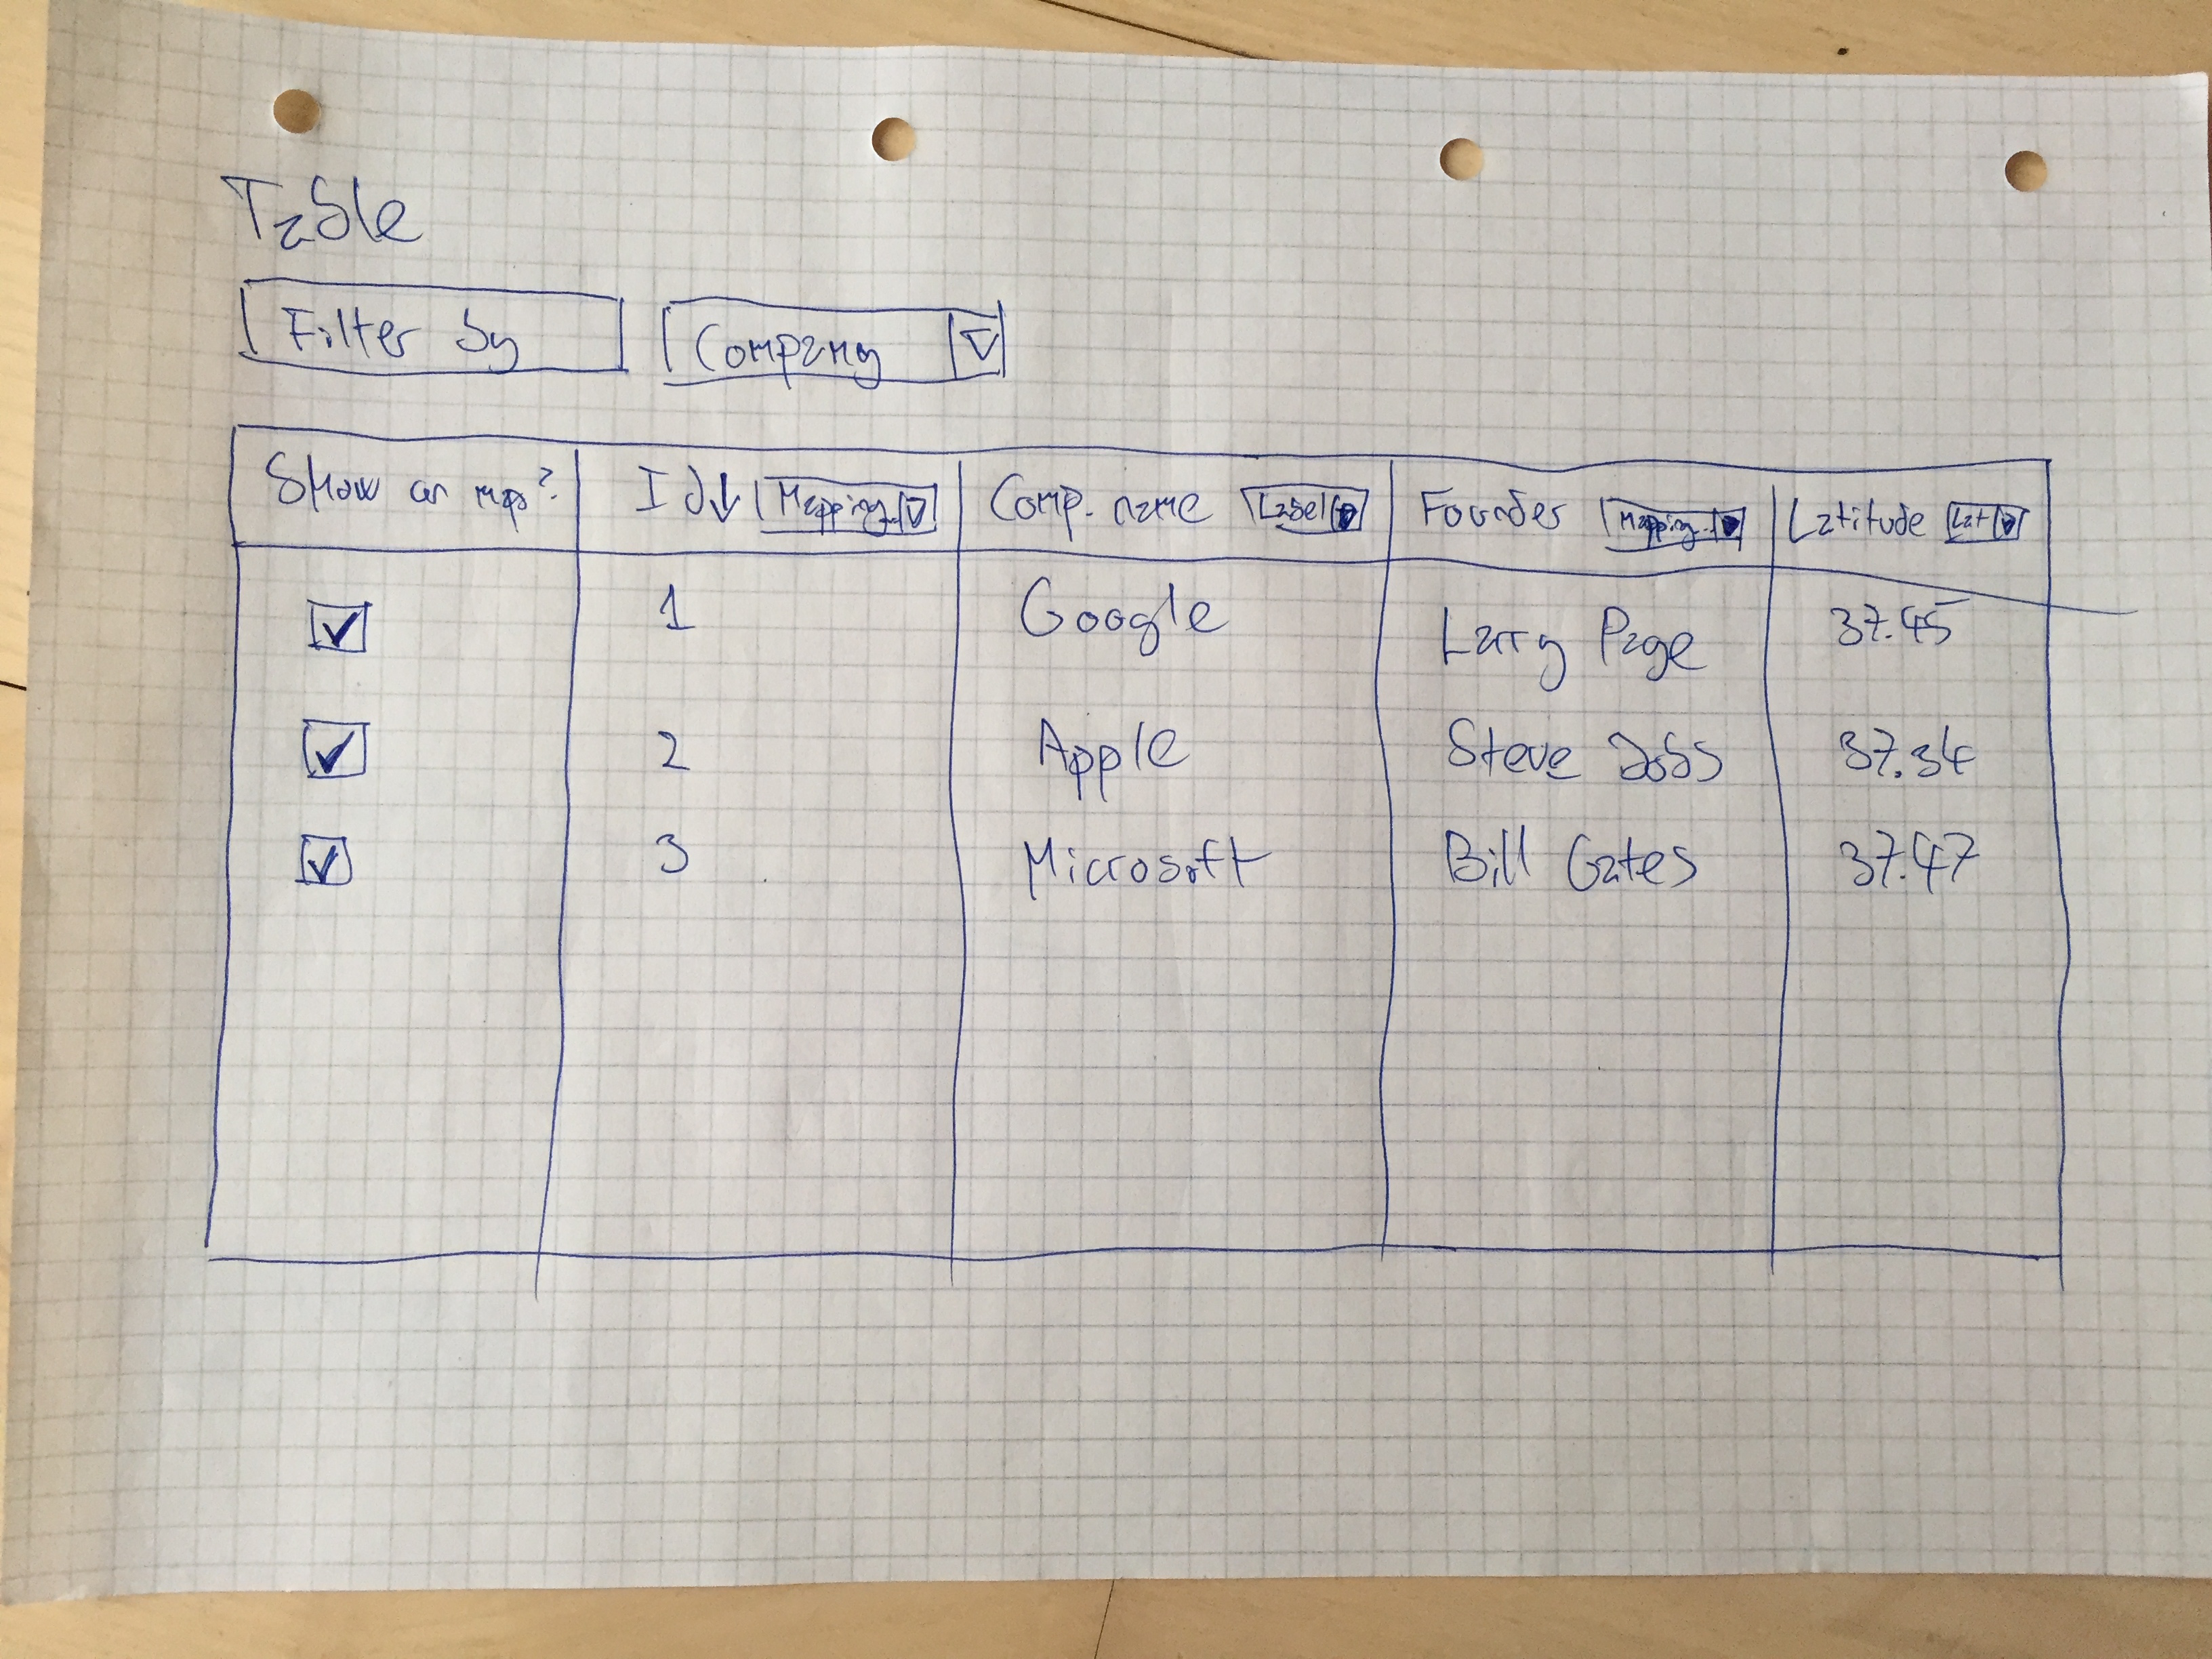 Table
Filter by Company
Show on map? Id Mapping Comp. name Label Founder Mapping Latitude Lat
1 Google Larry Page 37.45
2 Apple Steve Jobs 37.34
3 Microsoft Bill Gates 37.47